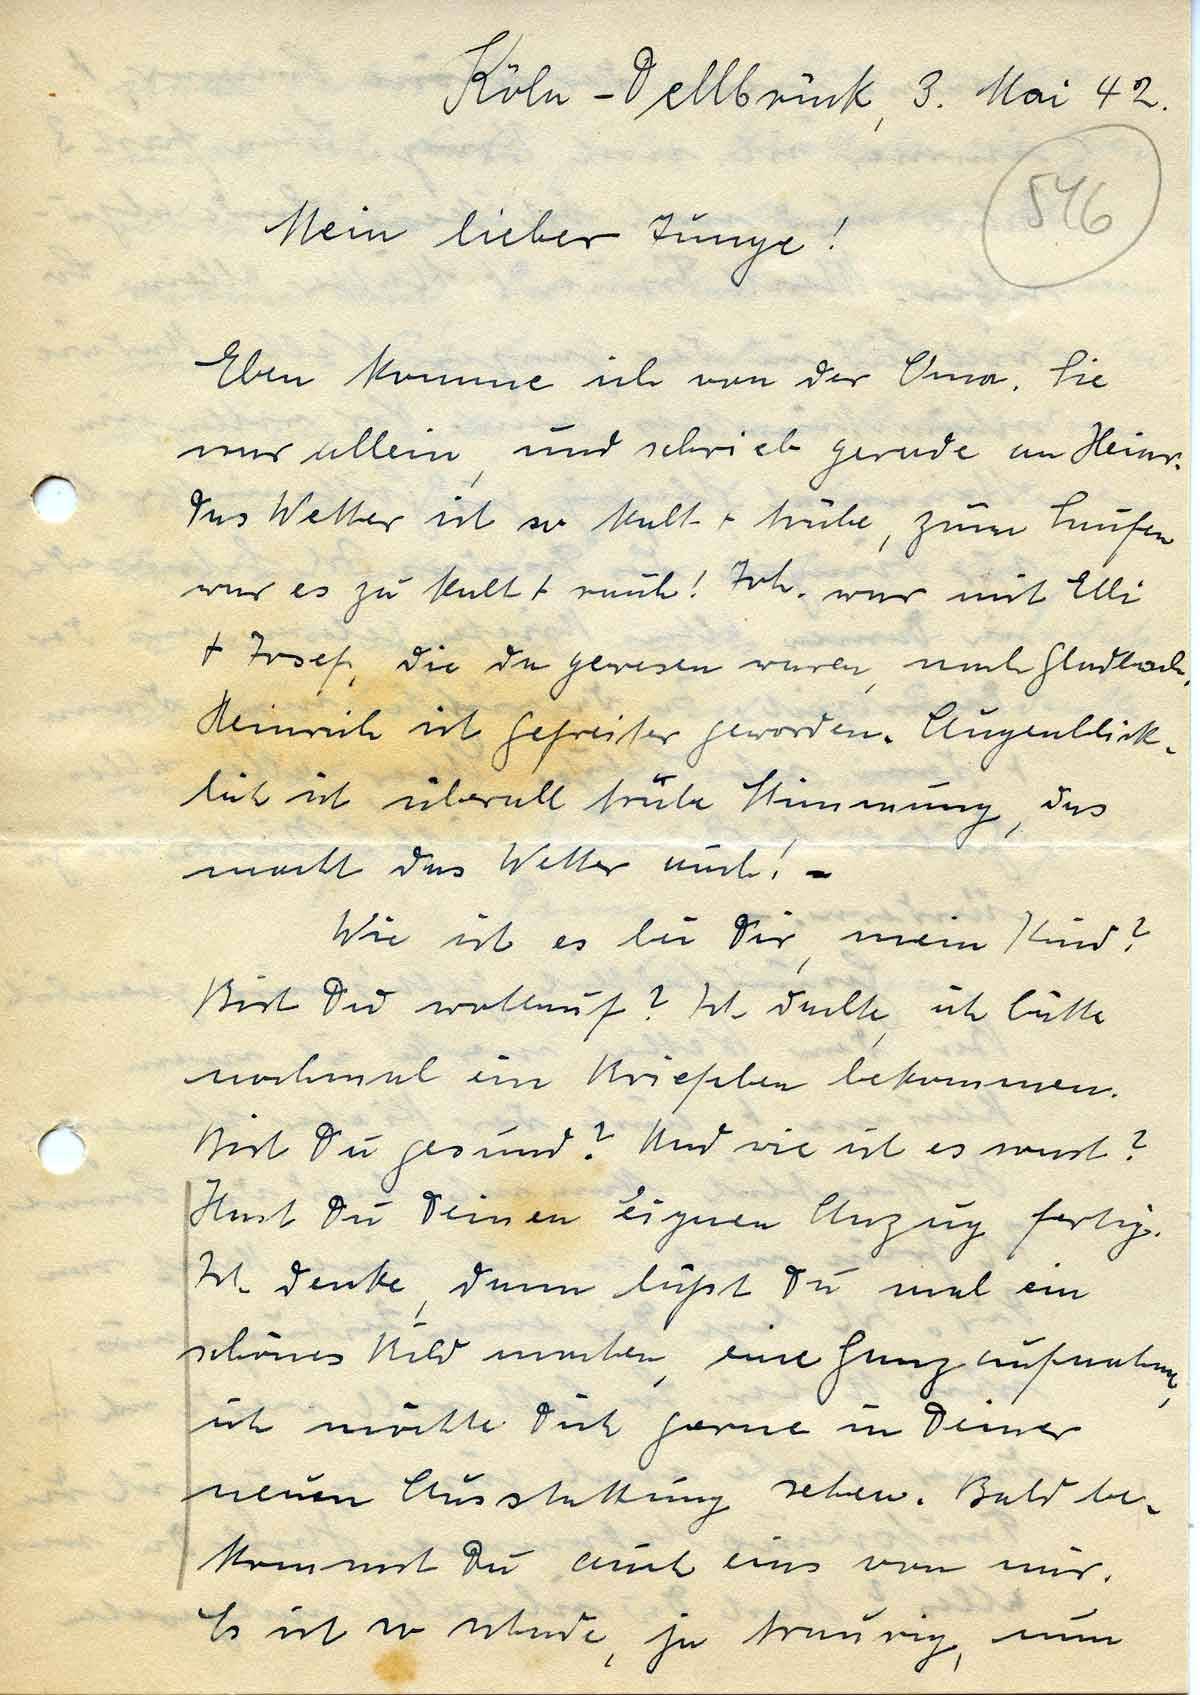 Köln-Dellbrück, 3. Mai 42.
546
Mein lieber Junge!
Eben komme ich von der Oma. Sie
war allein, und schrieb gerade an Heinr.
Das Wetter ist so kalt + trübe, zum Laufen
war es zu kalt + rauh! Joh. war mit Elli
+ Josef, die da gewesen waren, nach Gladbach.
Heinrich ist Gefreiter geworden. Augenblick-
lich ist überall trübe Stimmung, das
macht das Wetter auch! -
Wie ist es bei Dir, mein Kind?
Bist Du wohlauf? Ich dachte, ich hätte
nochmal ein Briefchen bekommen.
Bist Du gesund? Und wie ist es sonst?
Hast Du Deinen Eignen Anzug fertig.
Ich denke, dann läßt Du mal ein
schönes Bild machen, eine Ganzaufnahme,
ich möchte Dich gerne in Deiner
neuen Ausstattung sehen. Bald be-
kommst Du auch eins von mir.
Es ist so schade, ja traurig, nun